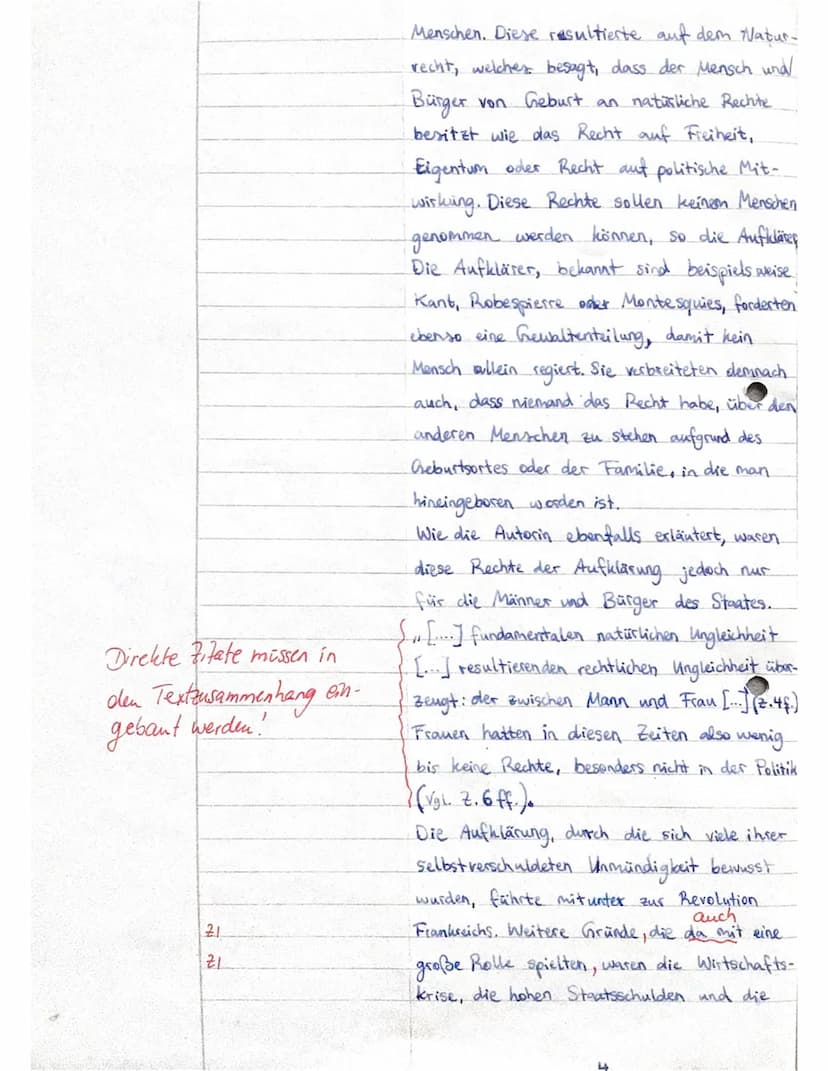 Menschen. Diese resultierte auf dem Natur-
recht, welches besagt, dass der Mensch und
Bürger von Geburt an natürliche Rechte
besitzt wie das Recht auf Freiheit,
Eigentum oder Recht auf politische Mit-
wirkung. Diese Rechte sollen keinem Menschen
genommen werden können, so die Aufklärer.
Die Aufklärer, bekannt sind beispielsweise
Kant, Robespierre oder Montesquies, forderten
ebenso eine Gewaltenteilung, damit kein
Mensch allein regiert. Sie verbreiteten demnach
auch, dass niemand das Recht habe, über den
anderen Menschen zu stehen aufgrund des
Geburtsortes oder der Familie, in die man
hineingeboren worden ist.
Wie die Autorin ebenfalls erläutert, waren
diese Rechte der Aufklärung jedoch nur
für die Männer und Bürger des Staates.
„[....] fundamentalen natürlichen Ungleichheit
[...] resultierenden rechtlichen Ungleichheit über-
zeugt: der zwischen Mann und Frau [...] (Z.4f.)
Frauen hatten in diesen Zeiten also wenig
bis keine Rechte, besonders nicht in der Politik
(Vgl. Z. 6 ff.).
Direkte Zitate müssen in
den Textzusammenhang ein-
gebaut werden!
Die Aufklärung, durch die sich viele ihrer
selbstverschuldeten Unmündigkeit bewusst
wurden, führte mitunter zur Revolution
auch
ZI Frankreichs. Weitere Gründe, die da mit eine
ZI große Rolle spielten, waren die Wirtschafts-
krise, die hohen Staatsschulden und die
4